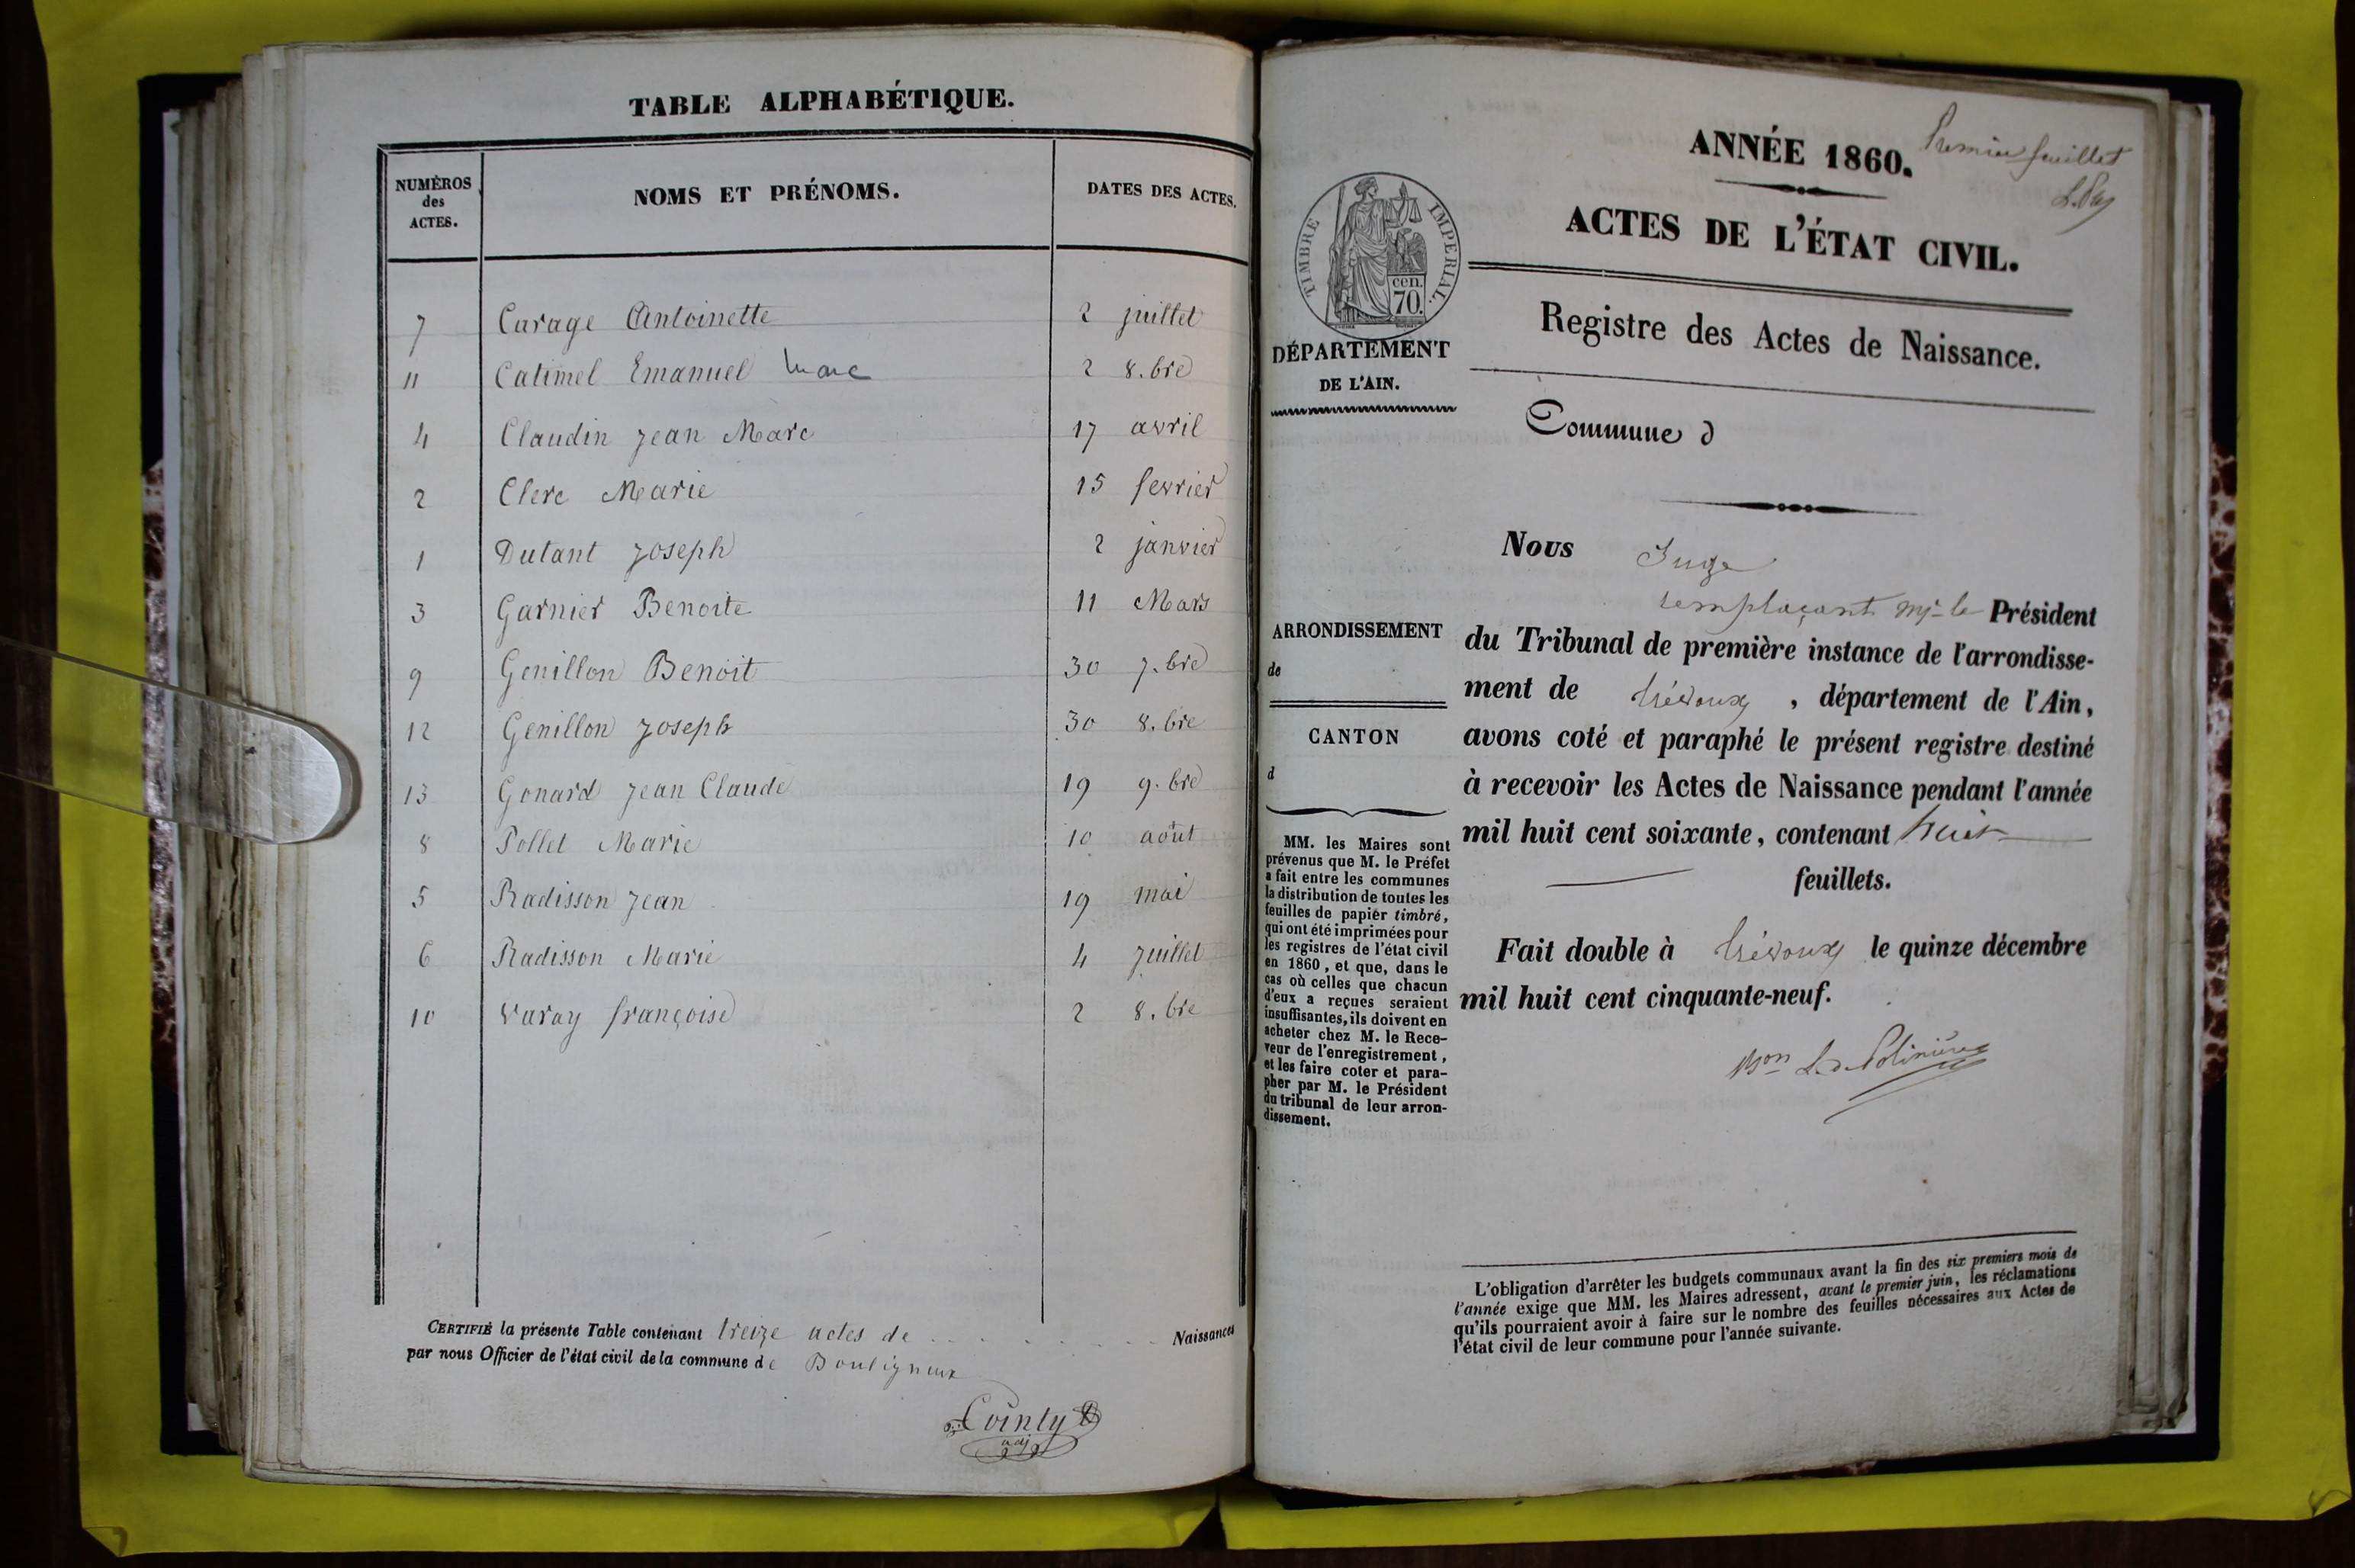 TABLE ALPHABÉTIQUE.
NUMÉROS des ACTES. NOMS ET PRÉNOMS. DATES DES ACTES.
7 Carage Antoinette 2 juillet
11 Catimel Emanuel Marc 2 8.bre
4 Claudin Jean Marc 17 avril
2 Clerc Marie 15 fevrier
1 Dutant Joseph 2 janvier
3 Garnier Benoite 11 Mars
9 Genillon Benoit 30 7.bre
12 Genillon Joseph 30 8.bre
13 Gonard Jean Claude 19 9.bre
8 Pollet Marie 10 août
5 Radisson Jean 19 mai
6 Radisson Marie 4 juillet
10 Varay françoise 2 8.bre
CERTIFIÉ la présente Table contenant treize actes de Naissances
par nous Officier de l'état civil de la commune de Bouligneux
Cointy
adj
Premier feuillet
ANNÉE 1860.
ACTES DE L'ÉTAT CIVIL.
Registre des Actes de Naissance.
TIMBRE IMPERIAL.
cen.
70.
DÉPARTEMENT
DE L'AIN.
Commune d
ARRONDISSEMENT
de
CANTON
d
MM. les Maires sont
prévenus que M. le Préfet
a fait entre les communes
la distribution de toutes les
feuilles de papier timbré,
qui ont été imprimées pour
les registres de l'état civil
en 1860, et que, dans le
cas où celles que chacun
d'eux a reçues seraient
insuffisantes, ils doivent en
acheter chez M. le Rece-
veur de l'enregistrement,
et les faire coter et para-
pher par M. le Président
du tribunal de leur arron-
dissement.
Nous Juge
remplaçant Mr le Président
du Tribunal de première instance de l'arrondisse-
ment de Trévoux, département de l'Ain,
avons coté et paraphé le présent registre destiné
à recevoir les Actes de Naissance pendant l'année
mil huit cent soixante, contenant huit
feuillets.
Fait double à Trévoux le quinze décembre
mil huit cent cinquante-neuf.
Bon L. de Polinière
L'obligation d'arrêter les budgets communaux avant la fin des six premiers mois de
l'année exige que MM. les Maires adressent, avant le premier juin, les réclamations
qu'ils pourraient avoir à faire sur le nombre des feuilles nécessaires aux Actes de
l'état civil de leur commune pour l'année suivante.